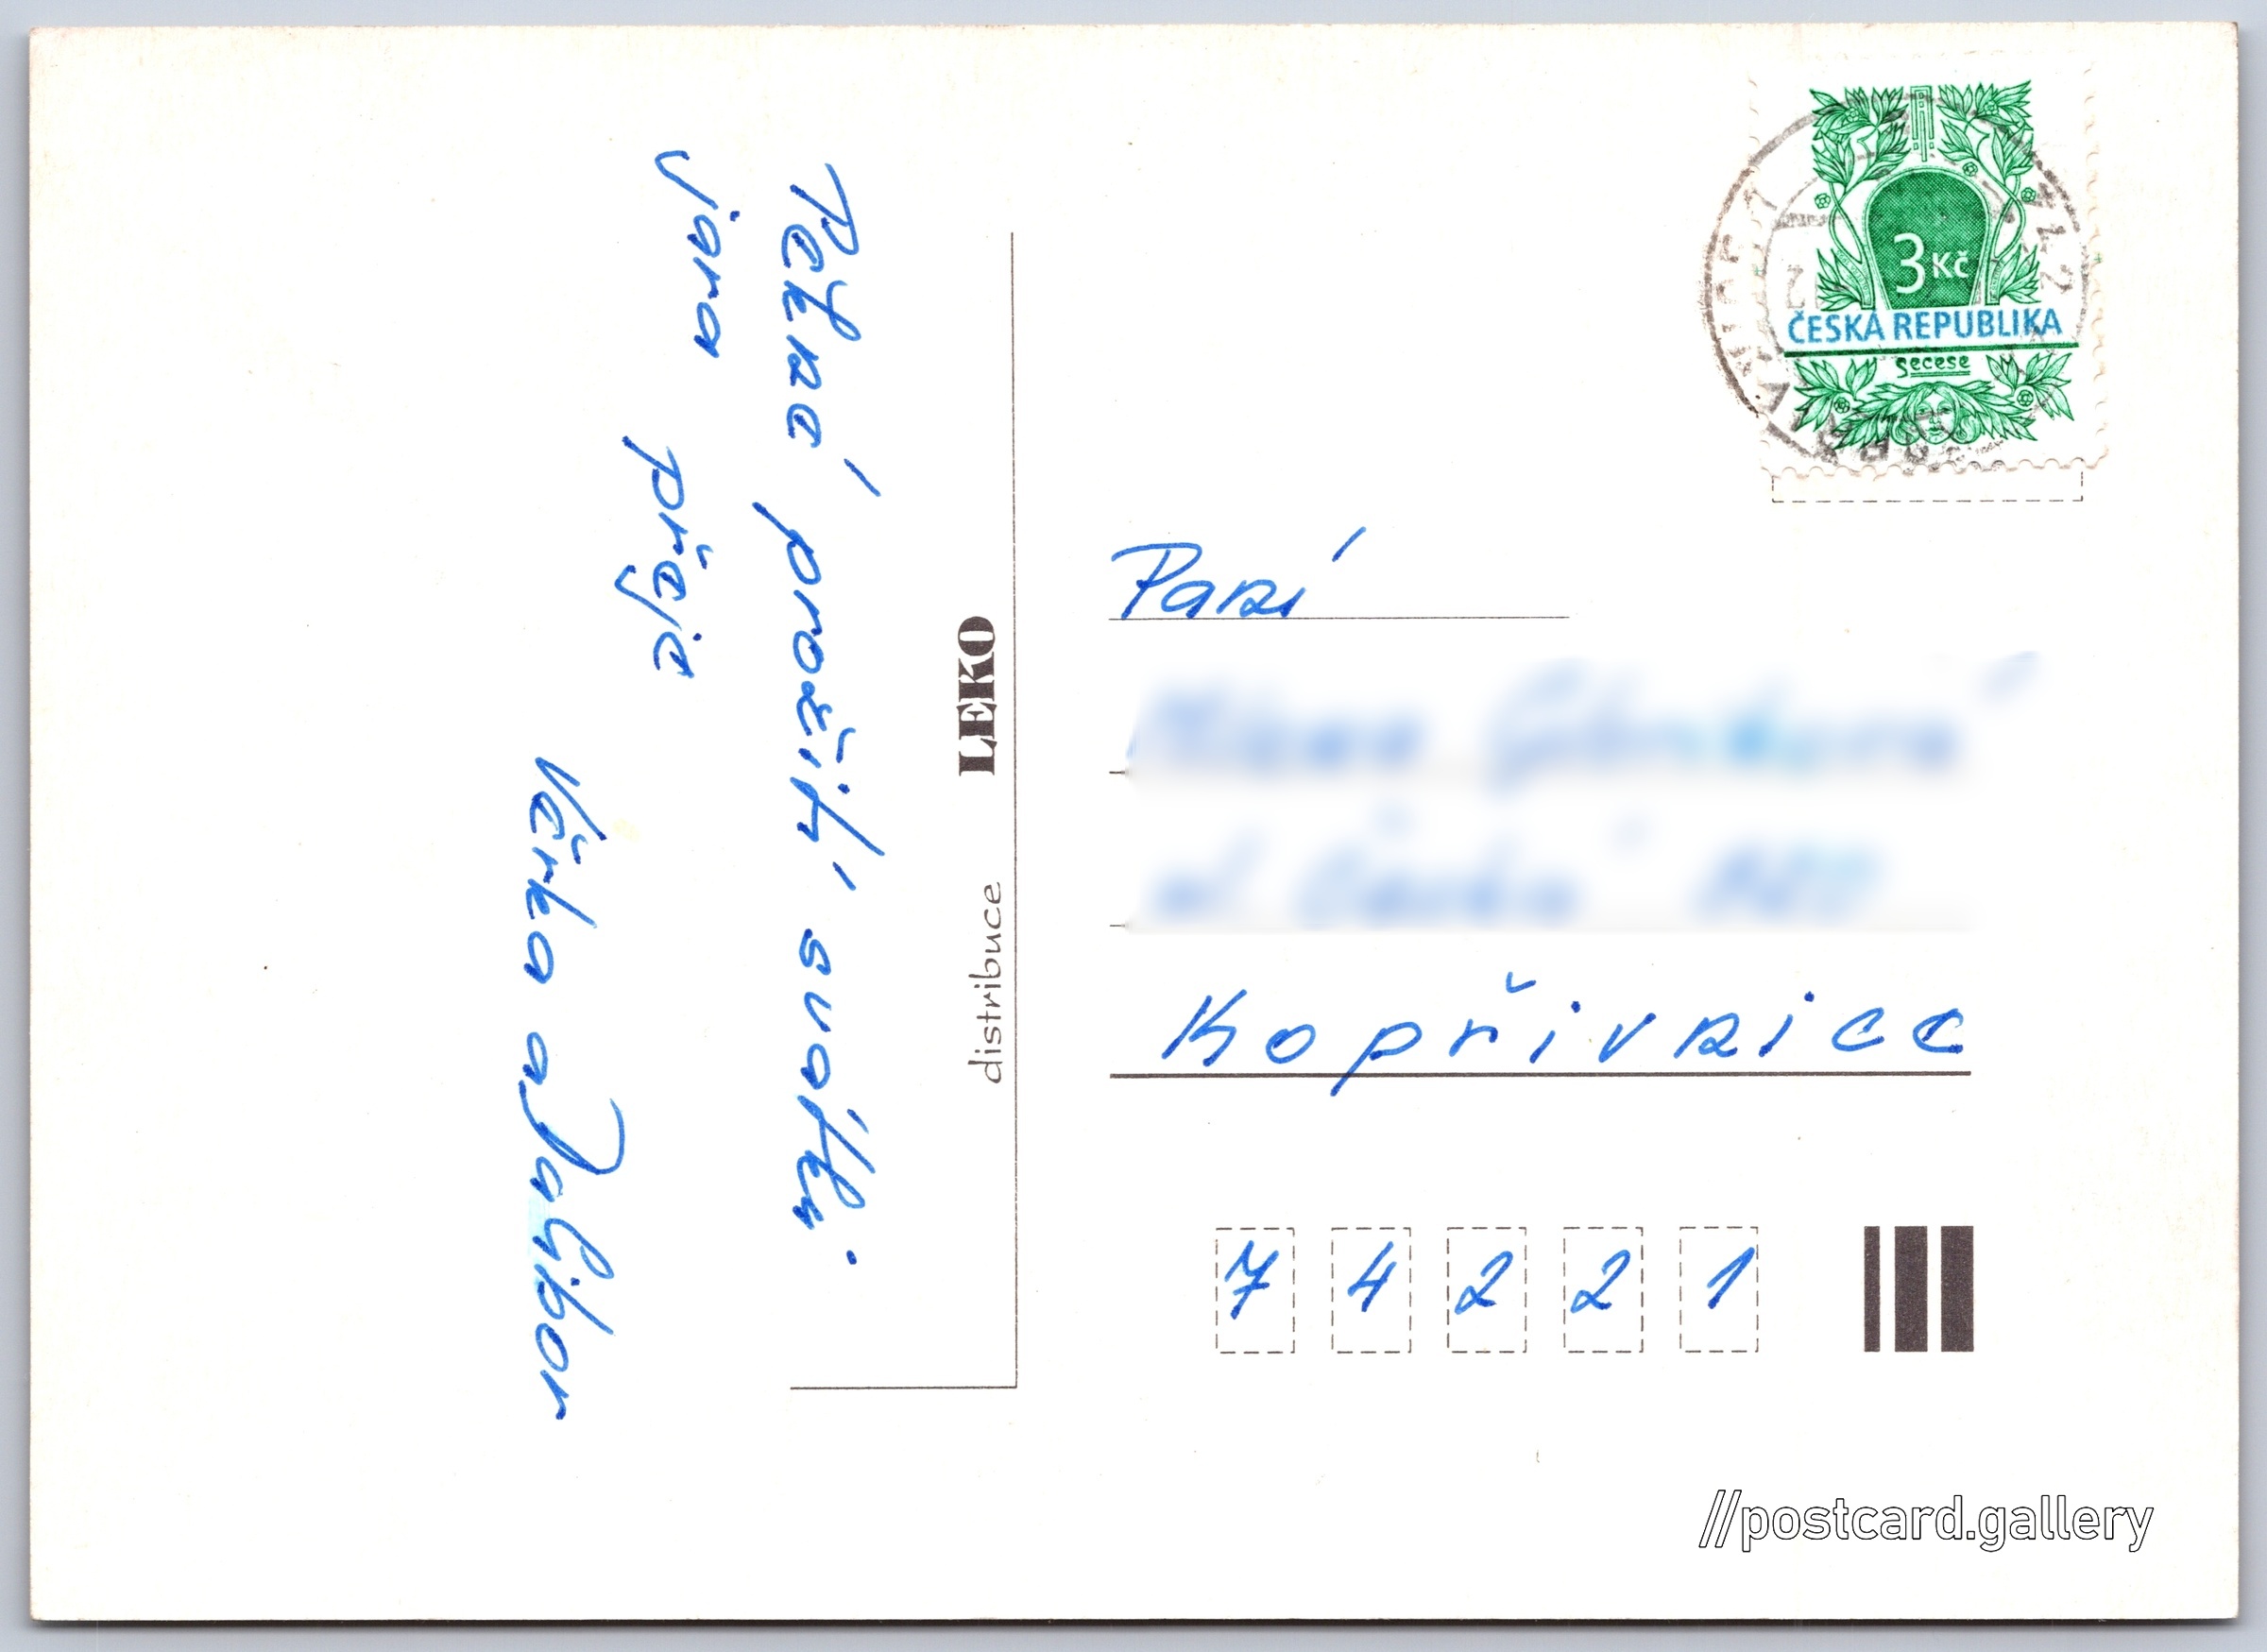 Pěkné prožití svátků
jara
přeje
Věrka a Dalibor
distribuce LEKO
3 Kč
ČESKÁ REPUBLIKA
secese
Paní
Kopřivnice
7 4 2 2 1
//postcard.gallery